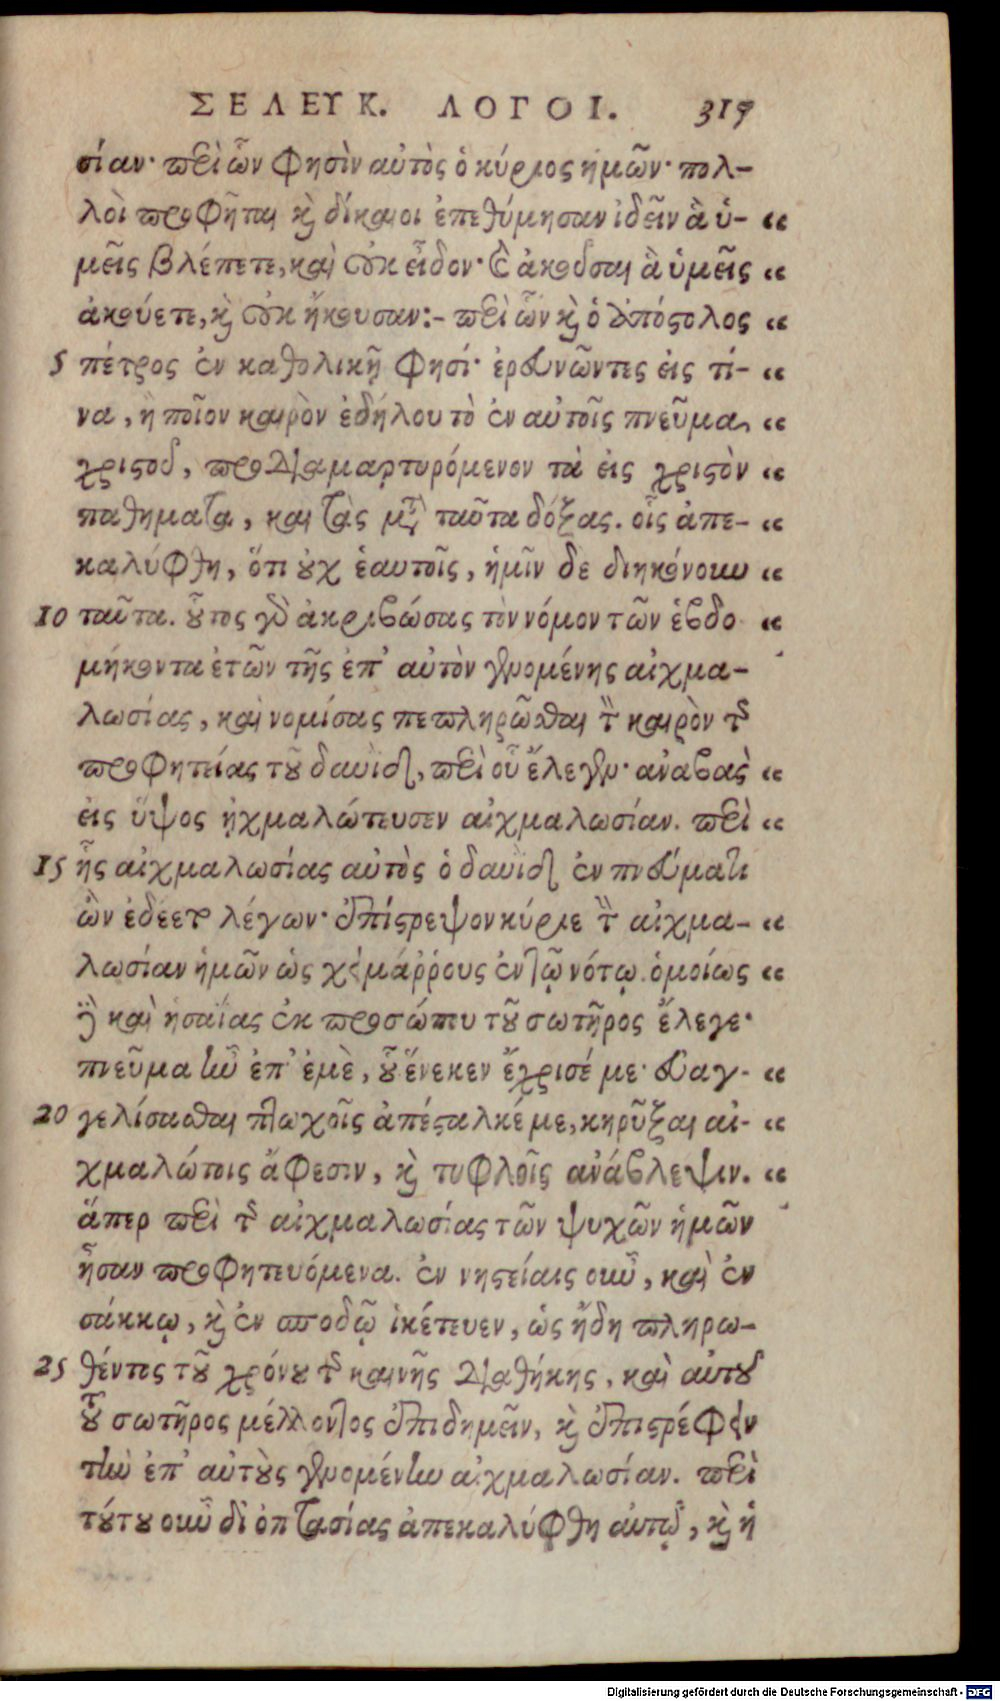 ΣΕΛΕΥΚ. ΛΟΓΟΙ. 319
σίαν· περὶ ὧν φησὶν αὐτὸς ὁ κύριος ἡμῶν· πολ-
λοὶ προφῆται καὶ δίκαιοι ἐπεθύμησαν ἰδεῖν ἃ ὑ- “
μεῖς βλέπετε, καὶ οὐκ εἶδον· καὶ ἀκοῦσαι ἃ ὑμεῖς “
ἀκούετε, καὶ οὐκ ἤκουσαν:- περὶ ὧν καὶ ὁ ἀπόστολος “
5 πέτρος ἐν καθολικῇ φησί· ἐρευνῶντες εἰς τί- “
να, ἢ ποῖον καιρὸν ἐδήλου τὸ ἐν αὐτοῖς πνεῦμα, “
χριστοῦ, προδιαμαρτυρόμενον τὰ εἰς χριστὸν “
παθηματα, και τὰς μετὰ ταῦτα δόξας. οἷς ἀπε- “
καλύφθη, ὅτι οὐχ ἑαυτοῖς, ἡμῖν δε διηκόνουν “
10 ταῦτα. οὗτος γὰρ ἀκριβώσας τὸν νόμον τῶν ἑβδο “
μήκοντα ἐτῶν τῆς ἐπ’ αὐτὸν γενομένης αἰχμα-
λωσίας, καὶ νομίσας πεπληρῶσθαι τὸν καιρὸν τῆς
προφητείας τοῦ δαυῒδ, περὶ οὗ ἔλεγεν· ἀναβὰς “
εἰς ὕψος ᾐχμαλώτευσεν αἰχμαλωσίαν. περὶ “
15 ἧς αἰχμαλωσίας αὐτὸς ὁ δαυῒδ ἐν πνεύματι
ὢν ἐδέετο λέγων· ἐπίστρεψον κύριε τὴν αἰχμα- “
λωσίαν ἡμῶν ὡς χειμάῤῥους ἐν τῷ νότῳ. ὁμοίως “
δὲ καὶ ἡσαΐας ἐκ προσώπου τοῦ σωτῆρος ἔλεγε·
πνεῦμα κυ ἐπ’ ἐμὲ, οὗ ἕνεκεν ἔχρισέ με· εὐαγ- “
20 γελίσασθαι πτωχοῖς ἀπέσταλκέ με, κηρῦξαι αἰ- “
χμαλώτοις ἄφεσιν, καὶ τυφλοῖς ἀνάβλεψιν. “
ἅπερ περὶ τῆς αἰχμαλωσίας τῶν ψυχῶν ἡμῶν
ἦσαν προφητευόμενα. ἐν νηστείαις οὖν, καὶ ἐν
σάκκῳ, καὶ ἐν σποδῷ ἱκέτευεν, ὡς ἤδη πληρω-
25 θέντος τοῦ χρόνου τῆς καινῆς διαθήκης, καὶ αὐτοῦ
τοῦ σωτῆρος μέλλοντος ἐπιδημεῖν, καὶ ἐπιστρέφειν
τὴν ἐπ’ αὐτοὺς γενομένην αἰχμαλωσίαν. περὶ
τούτου οὖν δι ὀπτασίας ἀπεκαλύφθη αὐτῷ, καὶ ἡ
Digitalisierung gefördert durch die Deutsche Forschungsgemeinschaft - DFG